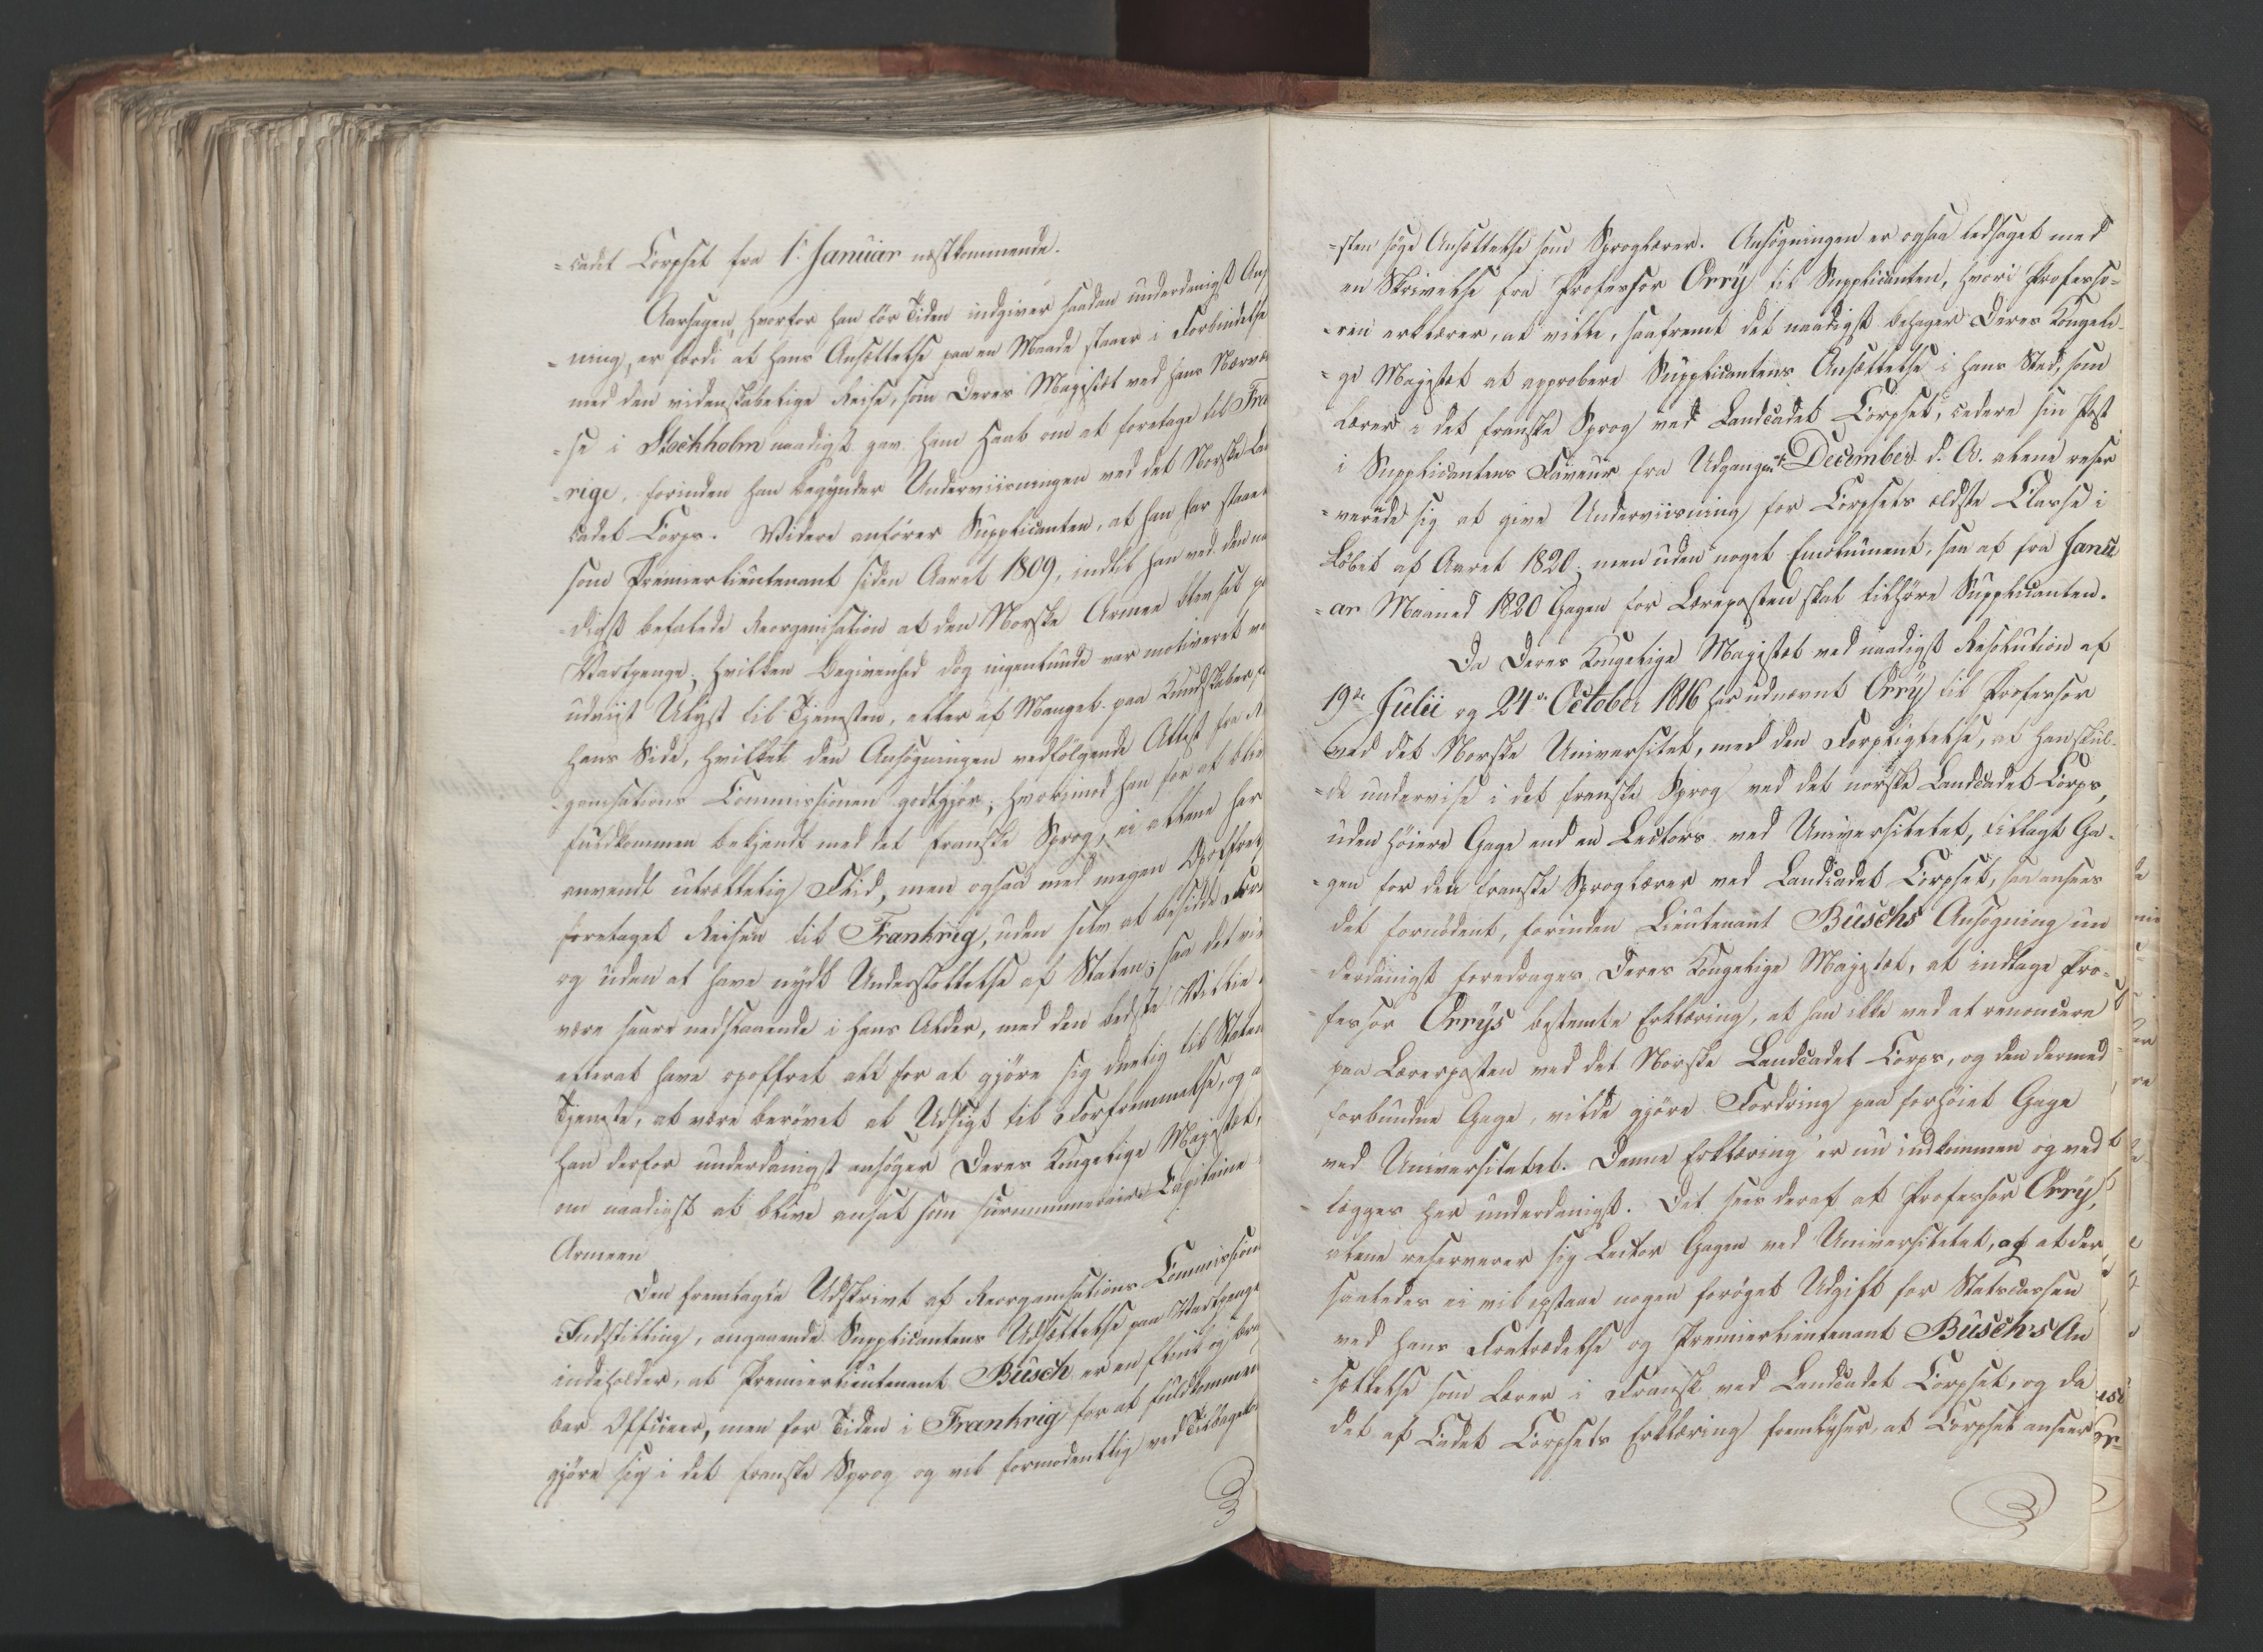 =cadet Corpset fra 1ste Januar næstkommende.
Aarsagen, hvorfor han før Tiden indgiver saadan underdanigst Ans
=ning, er fordi at hans Ansættelse paa en Maade staaer i Forbindelse
med den videnskabelige Reise, som Deres Majestæt ved hans Nærvæ
=se i Stockholm naadigst gav ham Haab om at foretage til Fra
=rige, forinden han begynder Underviisningen ved det Norske La
cadet Corps. Videre anfører Supplicanten, at han har staaet
som Premierlieutenant siden Aaret 1809, indtil han ved den na
=digst befalede Reorganisation af den Norske Armee blev sat p
Vartpenge, hvilken Begivenhed dog ingenlunde var motiveret ve
udviist Ulyst til Tjenesten, eller af Mangel paa Kundskaber fr
hans Side, hvilket den Ansøgningen vedfølgende Attest fra R
ganisations Commissionen godtgjør; hvorimod han for at bliv
fuldkommen bekjendt med det franske Sprog, ei allene har
anvendt utrættelig Fliid, men ogsaa med megen Opoffrels
foretaget Reisen til Frankrig, uden selv at besidde For
og uden at have nydt Understøttelse af Staten; saa det vil
være saare nedslaaende i hans Alder, med den bedste Villie
efterat have opoffret alt for at gjøre sig duelig til Staten
Tjeneste, at være berøvet al Udsigt til Forfremmelse, og a
han derfor underdanigst ansøger Deres Kongelige Majestæt,
om naadigst at blive ansat som surnummerair Capitaine
Armeen
Den fremlagte Udskrivt af Reorganisations Commission
Indstilling, angaaende Supplicantens Udsættelse paa Vartpenge
indeholder, at Premierlieutenant Büsch er en flink og bru
bar Officeer, men for Tiden i Frankrig for at fuldkomme
gjøre sig i det franske Sprog og vil formodentlig ved Tilbageko
=sten søge Ansættelse som Sproglærer. Ansøgningen er ogsaa ledsaget med
en Skrivelse fra Professor Orry til Supplicanten, hvori Professo=
=ren erklærer, at ville, saafremt det naadigst behager Deres Kongeli=
=ge Majestæt at approbere Supplicantens Ansættelse i hans Sted, som
Lærer i det franske Sprog ved Landcadet Corpset, cedere sin Post
i Supplicantens Faveur fra Udgangen af December d. A. alene reser
=verende sig at give Underviisning for Corpsets ældste Classe i
Løbet af Aaret 1820; men uden noget Emolument, saa at fra Janu
=ar Maaned 1820 Gagen for Lærerposten skal tilhøre Supplicanten.
Da Deres Kongelige Majestæt ved naadigst Resolution af
19de Julii og 24de October 1816 har udnævnt Orry til Professor
ved det Norske Universitet, med den Forpligtelse, at han skul=
=de undervise i det franske Sprog ved det norske Landcadet Corps,
uden høiere Gage end en Lectors ved Universitetet, tillagt Ga=
=gen for den franske Sproglærer ved Landcadet Corpset, saa ansees
det fornødent, forinden Lieutenant Büschs Ansøgning un
derdanigst foredrages Deres Kongelige Majestæt, at indtage Pro=
fessor Orrys bestemte Erklæring, at han ikke ved at renoncere
paa Lærerposten ved det Norske Landcadet Corps, og den dermed
forbundne Gage, vilde gjøre Fordring paa forhøiet Gage
ved Universitetet. Denne Erklæring er nu indkommen og ved
lægges her underdanigst. Det sees deraf at Professor Orry,
alene reserverer sig Lector Gagen ved Universitetet, og at der
saaledes ei vil opstaae nogen forøget Udgift for Statscassen
ved hans Fratrædelse og Premierlieutenant Büschs An
=sættelse som Lærer i Fransk ved Landcadet Corpset, og da
det af Cadet Corpsets Erklæring fremlyser, at Corpset anseer